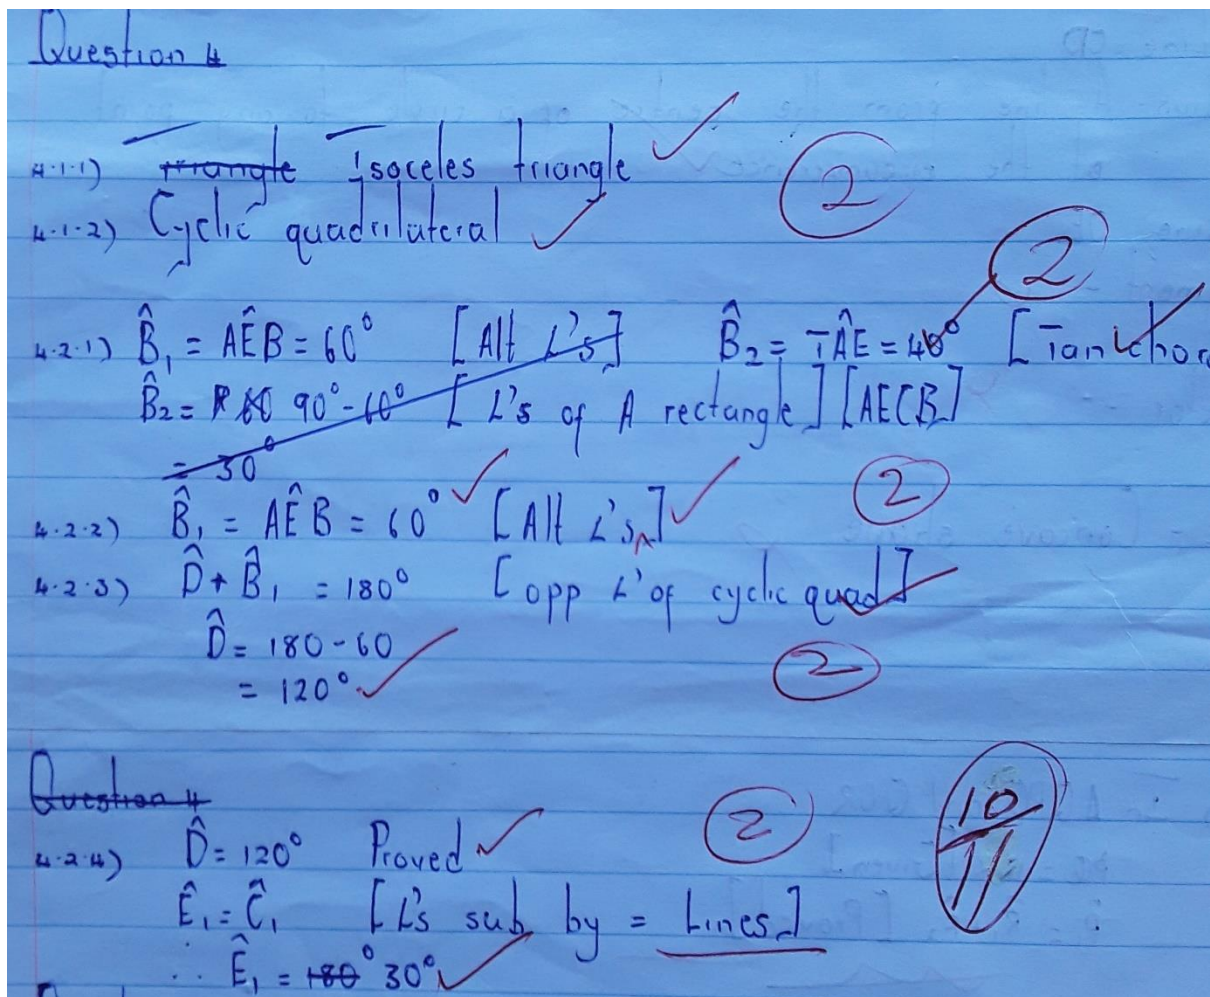 Question 4
4.1.1) triangle Isoceles triangle
2
4.1.2) Cyclic quadrilateral
2
4.2.1) B̂₁ = AÊB = 60° [Alt L's] B̂₂ = TÂE = 40° [Tan chor
B̂₂ = 90° - 60° [L's of A rectangle] [AECB]
= 30°
2
4.2.2) B̂₁ = AÊB = 60° [Alt L's]
4.2.3) D̂ + B̂₁ = 180° [opp L' of cyclic quad]
D̂ = 180 - 60
2
= 120°
Question 4
2
10/11
4.2.4) D̂ = 120° Proved
Ê₁ = Ĉ₁ [L's sub by = Lines]
∴ Ê₁ = 180° 30°